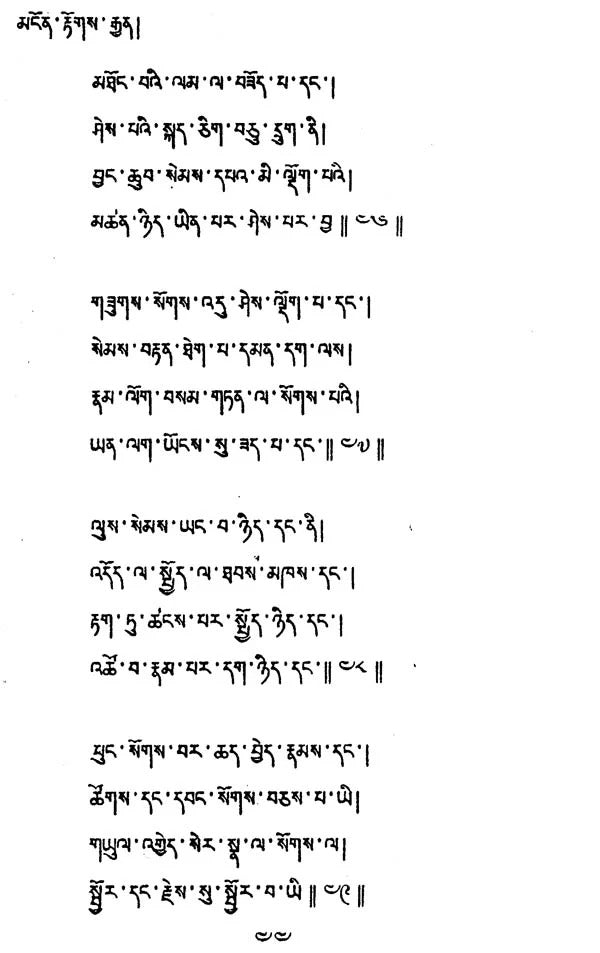 མངོན་རྟོགས་རྒྱན།
མཐོང་བའི་ལམ་ལ་བཟོད་པ་དང་།
ཤེས་པའི་སྐད་ཅིག་བཅུ་དྲུག་ནི།
བྱང་ཆུབ་སེམས་དཔའ་མི་ལྡོག་པའི།
མཚན་ཉིད་ཡིན་པར་ཤེས་པར་བྱ༎ ༤༦༎
གཟུགས་སོགས་འདུ་ཤེས་ལྡོག་པ་དང་།
སེམས་བརྟན་ཐེག་པ་དམན་དག་ལས།
རྣམ་ལོག་བསམ་གཏན་ལ་སོགས་པའི།
ཡན་ལག་ཡོངས་སུ་ཟད་པ་དང་༎ ༤༧༎
ལུས་སེམས་ཡང་བ་ཉིད་དང་ནི།
འདོད་ལ་སྤྱོད་ལ་ཐབས་མཁས་དང་།
རྟག་ཏུ་ཚངས་པར་སྤྱོད་ཉིད་དང་།
འཚོ་བ་རྣམ་པར་དག་ཉིད་དང་༎ ༤༨༎
ཕུང་སོགས་བར་ཆད་བྱེད་རྣམས་དང་།
ཚོགས་དང་དབང་སོགས་བཅས་པ་ཡི།
གཡུལ་འགྱེད་སེར་སྣ་ལ་སོགས་ལ།
སྦྱོར་དང་རྗེས་སུ་སྦྱོར་བ་ཡི༎ ༤༩༎
༤༤